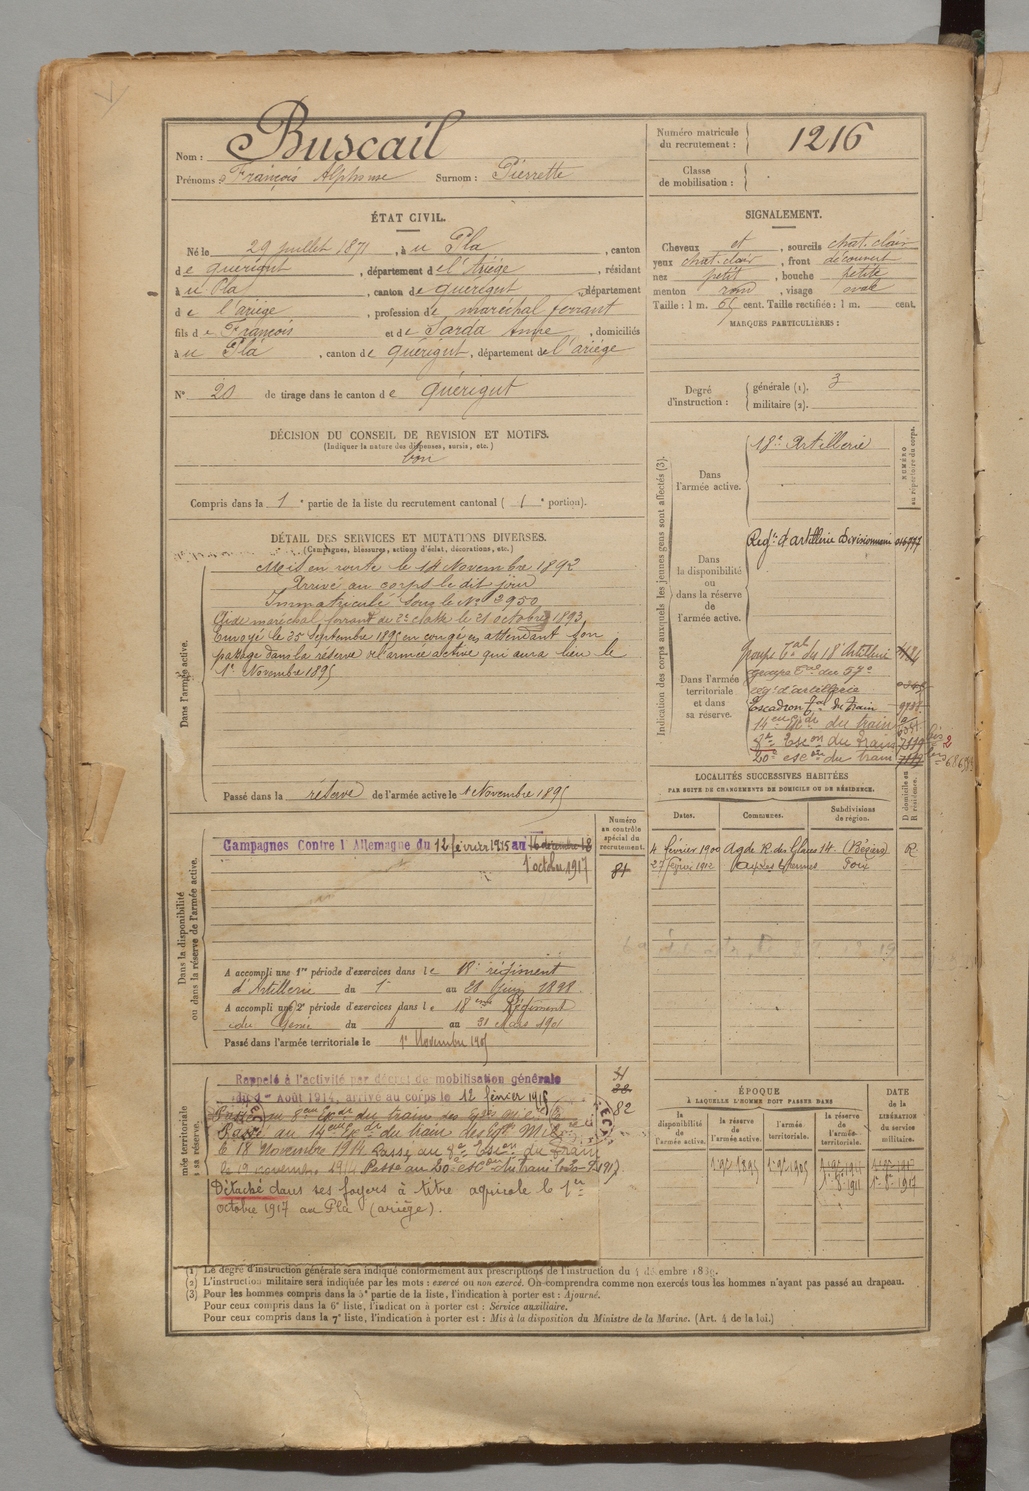 Nom : Buscail
Prénoms : François Alphonse Surnom : Pierrette
Numéro matricule du recrutement : 1216
Classe de mobilisation :
ÉTAT CIVIL.
Né le 29 juillet 1871, à u Pla, canton
de quérigut, département de l'Ariége, résidant
à u Pla, canton de quérigut, département
d e l'ariége, profession de maréchal ferrant
fils de François et de Sarda Anne, domiciliés
à u Pla, canton de quérigut, département de l'ariége
N° 20 de tirage dans le canton de Quérigut
SIGNALEMENT.
Cheveux et, sourcils chat. clair
yeux chat. clair, front découvert
nez petit, bouche petite
menton rond, visage ovale
Taille : 1 m. 65 cent. Taille rectifiée : 1 m. cent.
MARQUES PARTICULIÈRES :
Degré d'instruction : générale (1). 3
militaire (2).
DÉCISION DU CONSEIL DE REVISION ET MOTIFS.
(Indiquer la nature des dispenses, sursis, etc.)
bon
Compris dans la 1e partie de la liste du recrutement cantonal ( 1e portion).
DÉTAIL DES SERVICES ET MUTATIONS DIVERSES.
(Campagnes, blessures, actions d'éclat, décorations, etc.)
Dans l'armée active.
Mis en route le 14 Novembre 1892
Arrivé au corps le dit jour
Immatriculé sous le No 2950
Aide maréchal ferrant de 2e classe le 21 octobre 1893
Envoyé le 25 Septembre 1895 en congé en attendant son
passage dans la réserve de l'armée active qui aura lieu le
1er Novembre 1895
Passé dans la réserve de l'armée active le 1 Novembre 1895
Indication des corps auxquels les jeunes gens sont affectés (3).
NUMÉRO au répertoire du corps.
Dans l'armée active.
18e Artillerie
Dans la disponibilité ou dans la réserve de l'armée active.
Regt d'artillerie Divisionnaire
Dans l'armée territoriale et dans sa réserve.
groupe tal du 18e Artillerie
groupe tal du 57e
reg. d'artillerie
Escadron tal du Train
14eme du train
8e Escon du train
20e escon du train
Dans la disponibilité ou dans la réserve de l'armée active.
Numéro au contrôle spécial du recrutement.
81
Campagnes Contre l'Allemagne du 12 février 1915 au
1er octobre 1917
A accompli une 1re période d'exercices dans le 18e régiment
d'Artillerie du 1er au 28 1898
A accompli une 2e période d'exercices dans le 18eme Régiment
du Génie du 4 au 31 Mars 1901
Passé dans l'armée territoriale le 1er Novembre 1905
LOCALITÉS SUCCESSIVES HABITÉES
PAR SUITE DE CHANGEMENTS DE DOMICILE OU DE RÉSIDENCE.
Dates. Communes. Subdivisions de région. D domicile ou R résidence.
4 février 1900 Agde R. des Glaces 14 (Béziers) R
27 février 1912 Foix
mée territoriale
sa réserve.
Rappelé à l'activité par décret de mobilisation générale
du 1er Août 1914, arrivé au corps le 12 février 1915
Passé au 14eme du train des Eq. Milres
le 18 Novembre 1914 Passé au 8e Escon du Train
le 19 novembre 1914 Passe au 20e escon du train
Détaché dans ses foyers à titre agricole le 1er
octobre 1917 au Pla (ariège).
82
ÉPOQUE
À LAQUELLE L'HOMME DOIT PASSER DANS
la disponibilité de l'armée active. la réserve de l'armée active. l'armée territoriale. la réserve de l'armée territoriale.
DATE de la LIBÉRATION du service militaire.
1er 9bre 1895 1er 9bre 1905
(1) Le degré d'instruction générale sera indiqué conformément aux prescriptions de l'instruction du 4 décembre 1889.
(2) L'instruction militaire sera indiquée par les mots : exercé ou non exercé. On comprendra comme non exercés tous les hommes n'ayant pas passé au drapeau.
(3) Pour les hommes compris dans la 5e partie de la liste, l'indication à porter est : Ajourné.
Pour ceux compris dans la 6e liste, l'indication à porter est : Service auxiliaire.
Pour ceux compris dans la 7e liste, l'indication à porter est : Mis à la disposition du Ministre de la Marine. (Art. 4 de la loi.)